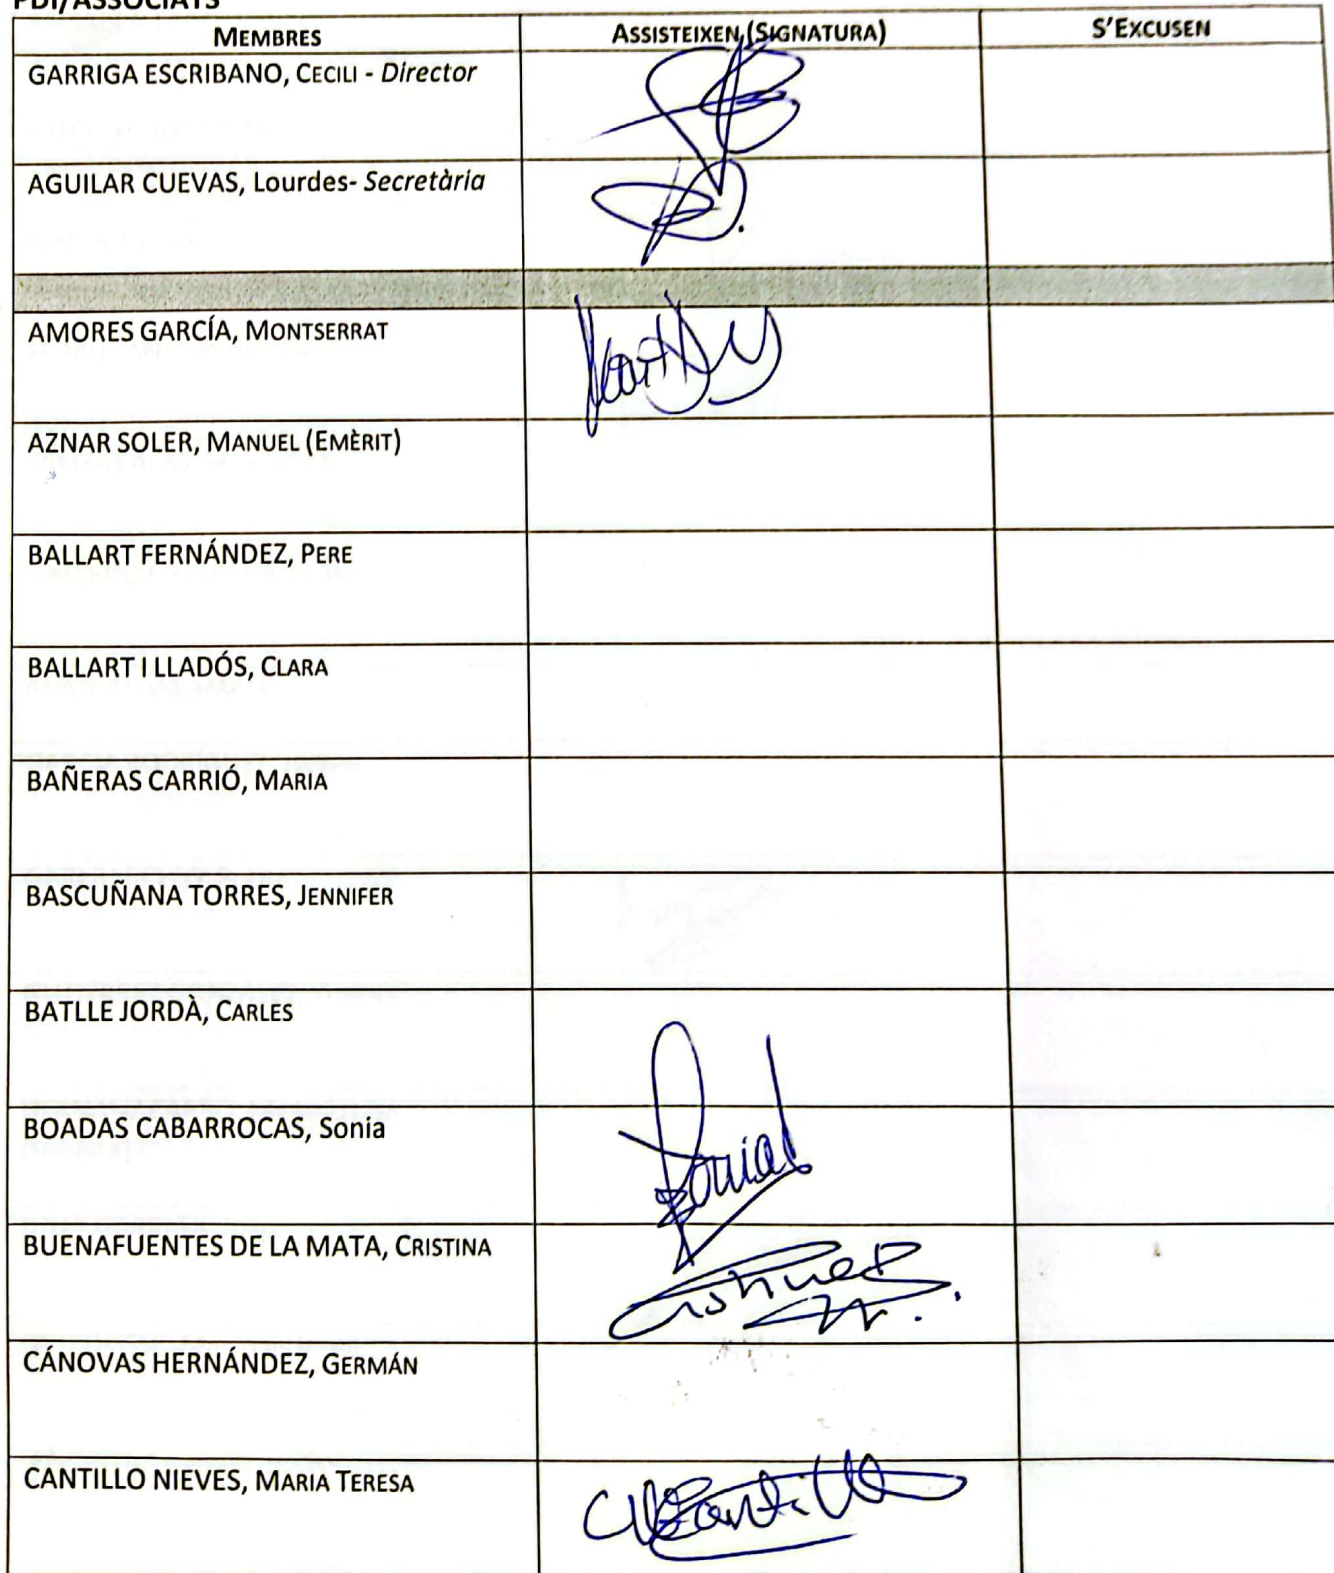 PDI/ASSOCIATS
MEMBRES ASSISTEIXEN (SIGNATURA) S'EXCUSEN
GARRIGA ESCRIBANO, CECILI - Director
AGUILAR CUEVAS, Lourdes- Secretària
AMORES GARCÍA, MONTSERRAT
AZNAR SOLER, MANUEL (EMÈRIT)
BALLART FERNÁNDEZ, PERE
BALLART I LLADÓS, CLARA
BAÑERAS CARRIÓ, MARIA
BASCUÑANA TORRES, JENNIFER
BATLLE JORDÀ, CARLES
BOADAS CABARROCAS, Sonia
BUENAFUENTES DE LA MATA, CRISTINA
CÁNOVAS HERNÁNDEZ, GERMÁN
CANTILLO NIEVES, MARIA TERESA